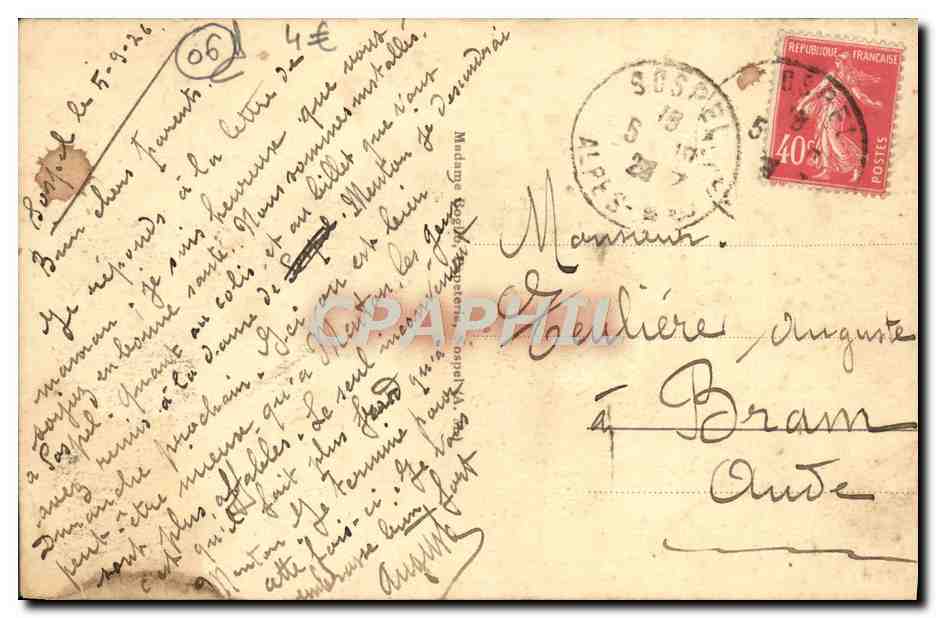 06
4€
Sospel le 5-9-26
Bien chers parents.
Je réponds à la lettre de
maman. Je suis heureux que vous
soyez en bonne santé. Nous sommes installés
à Sospel. Quant au colis et au billet que vous
avez remis à la dame de Menton je descendrai
Dimanche prochain. Ici on est bien
peut-être mieux qu'à Menton, les gens
sont plus affables. Le seul inconvénient
c'est qu'il fait plus froid qu'à
Menton. Je termine pour
cette fois-ci. Je vous
embrasse bien fort
Auguste
Madame Sospel A.
CPAPHIL
SOSPEL
18
5 9
ALPES-
RÉPUBLIQUE FRANÇAISE
40c
POSTES
Monsieur.
Auguste
à Bram
Aude